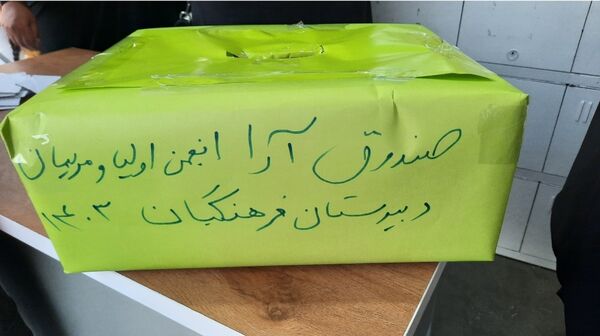 صندوق آرا انجمن اولیا و مربیان
دبیرستان فرهنگیان ۱۴۰۳